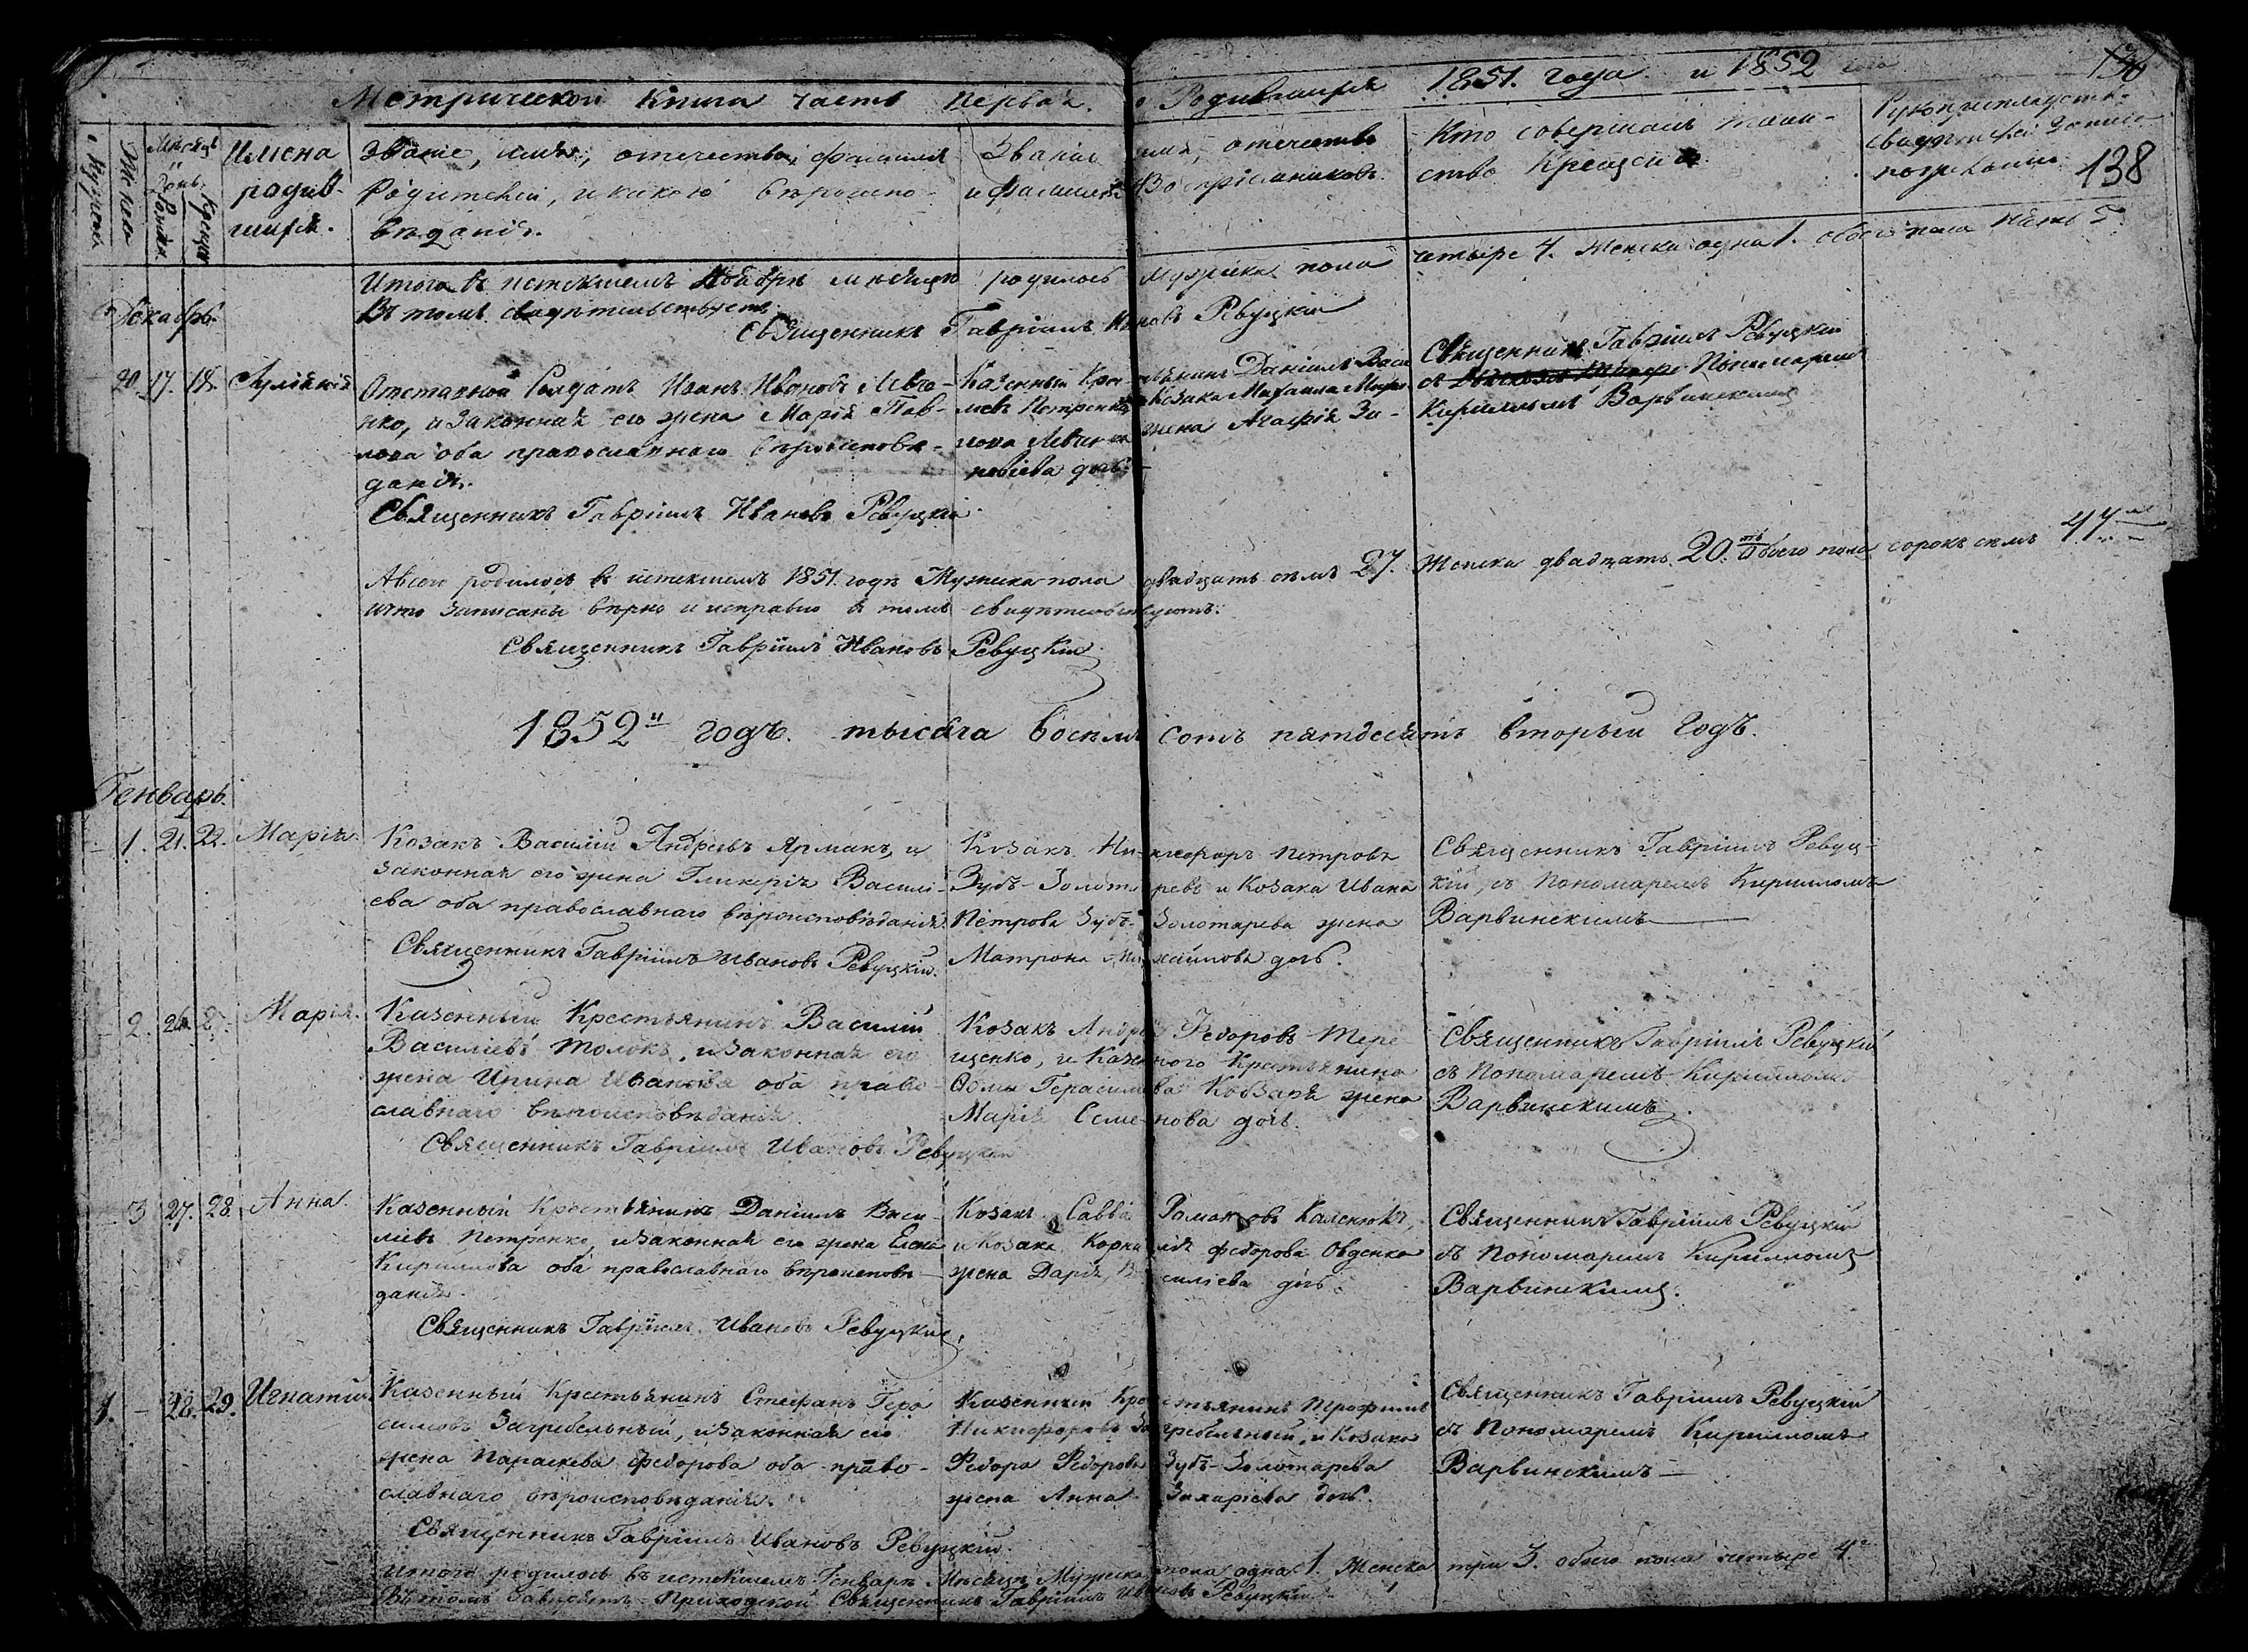 Метрической Книги часть Первая. о Родившихся 1851. года и 1852 года
138
Мѣсяцъ и День
Рожденія
Крещенія
Имена родив-
шихся.
Званіе, имя, отчество, фамилія
Родителей, и какого вѣроиспо-
вѣданія.
Званіе имя, отчество
и фамилія Воспріемниковъ.
Кто совершалъ таин-
ство Крещенія
Рукоприкладство
свидѣтелей записи
по желанію
Итого въ истекшемъ Ноябрѣ мѣсяцѣ родилось Мужеска пола четыре 4. Женска одна 1. обоего пола пять 5
Въ томъ свидѣтельствуетъ
Священникъ Гавріилъ Ивановъ Ревуцкій
Декабрь.
20. 17. 18.
Отставной Солдатъ Иванъ Ивановъ Левче-
нко, и законная его жена Марія Пав-
лова оба православнаго вѣроисповѣ-
данія.
Священникъ Гавріилъ Ивановъ Ревуцкій
Казенный Кре-стьянинъ Даніилъ Васи
лiевъ Петренко, и Козака Михаила
жена Агафія Зи-
новіева дочь.
Священникъ Гавріилъ Ревуцкій
съ Пономаремъ
Кирилломъ Варвинскимъ
А всего родилось въ истекшемъ 1851. годѣ Мужеска пола двадцать семь 27. Женска двадцать 20. Обоего пола сорокъ семь 47.
что записаны вѣрно и исправно въ томъ свидѣтельствуетъ:
Священникъ Гавріилъ Ивановъ Ревуцкій
1852й годъ. тысяча восемь сотъ пятдесятъ вторый годъ.
Генварь.
1. 21. 22. Марія.
Козакъ Василій Андреевъ Ярмакъ, и
законная его жена Гликерія Василі-
ева оба православнаго вѣроисповѣданія.
Священникъ Гавріилъ Ивановъ Ревуцкій.
Козакъ Ни-кифоръ Петровъ
Зубъ-Золотаревъ и Козака Ивана
Петрова Зубъ-Золотарева жена
Матрона Михайлова дочь.
Священникъ Гавріилъ Ревуц-
кій, съ Пономаремъ Кирилломъ
Варвинскимъ
2. 26. 27. Марія.
Казенный Крестьянинъ Василій
Василіевъ Толокъ, и законная его
жена Ирина Иванова оба право-
славнаго вѣроисповѣданія.
Священникъ Гавріилъ Ивановъ Ревуцкій
Козакъ Андрей Федоровъ Тере
щенко, и Казенного Крестьянина
Фомы Герасимова Кобзаря жена
Марія Семе-нова дочь.
Священникъ Гавріилъ Ревуцкій
съ Пономаремъ Кирилломъ
Варвинскимъ.
3 27. 28. Анна.
Казенный Крестьянинъ Даніилъ Васи-
ліевъ Петренко, и законная его жена Елена
Кириллова оба православнаго вѣроисповѣ-
данія.
Священникъ Гавріилъ Ивановъ Ревуцкій.
Козакъ Савва Романовъ Каленюкъ,
и Козака Корнилія Федорова Овденка
жена Дарія Василіева дочь.
Священникъ Гавріилъ Ревуцкій
съ Пономаремъ Кирилломъ
Варвинскимъ.
1. - 28. 29. Игнатій.
Казенный Крестьянинъ Стефанъ Гера
симовъ Загребельный, и законная его
жена Параскева Федорова оба право-
славнаго вѣроисповѣданія.
Священникъ Гавріилъ Ивановъ Ревуцкій.
Казенный Крестьянинъ Трофимъ
Никифоровъ Загребельный, и Козака
Федора Федорова Зубъ-Золотарева
жена Анна Захаріева дочь.
Священникъ Гавріилъ Ревуцкій
съ Пономаремъ Кирилломъ
Варвинскимъ
Итого родилось въ истекшемъ Генварѣ Мѣсяцѣ Мужеска пола одна 1. Женска три 3. обоего пола четыре 4.
Въ томъ Приходской Священникъ Гавріилъ Ивановъ Ревуцкій